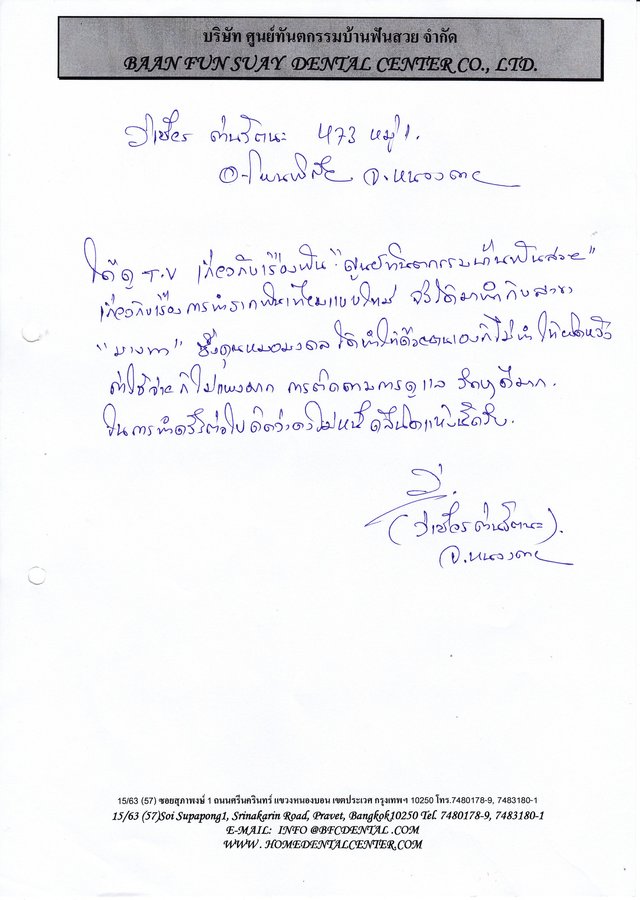 บริษัท ศูนย์ทันตกรรมบ้านฟันสวย จำกัด
BAAN FUN SUAY DENTAL CENTER CO., LTD.
วิเชียร ต่านรัตนะ 473 หมู่ 1.
อ.โพนพิสัย จ.หนองคาย
ได้ดู T.V เกี่ยวกับเรื่องฟัน "ศูนย์ทันตกรรมบ้านฟันสวย"
เกี่ยวกับเรื่องการทำรากฟันเทียมแบบใหม่ จึงได้มาทำกับสาขา
"บางนา" ซึ่งคุณหมอมงคล ได้ทำให้ด้วยตนเองก็ไม่ทำให้ผิดหวัง
ค่าใช้จ่ายก็ไม่แพงมาก การติดตามการดูแล ดีมาก.
ในการทำครั้งต่อไปคิดว่าคงไม่หนี แห่งนี้ครับ.
(วิเชียร ต่านรัตนะ).
จ.หนองคาย
15/63 (57) ซอยสุภาพงษ์ 1 ถนนศรีนครินทร์ แขวงหนองบอน เขตประเวศ กรุงเทพฯ 10250 โทร.7480178-9, 7483180-1
15/63 (57)Soi Supapong1, Srinakarin Road, Pravet, Bangkok10250 Tel. 7480178-9, 7483180-1
E-MAIL: INFO @BFCDENTAL .COM
WWW . HOMEDENTALCENTER.COM